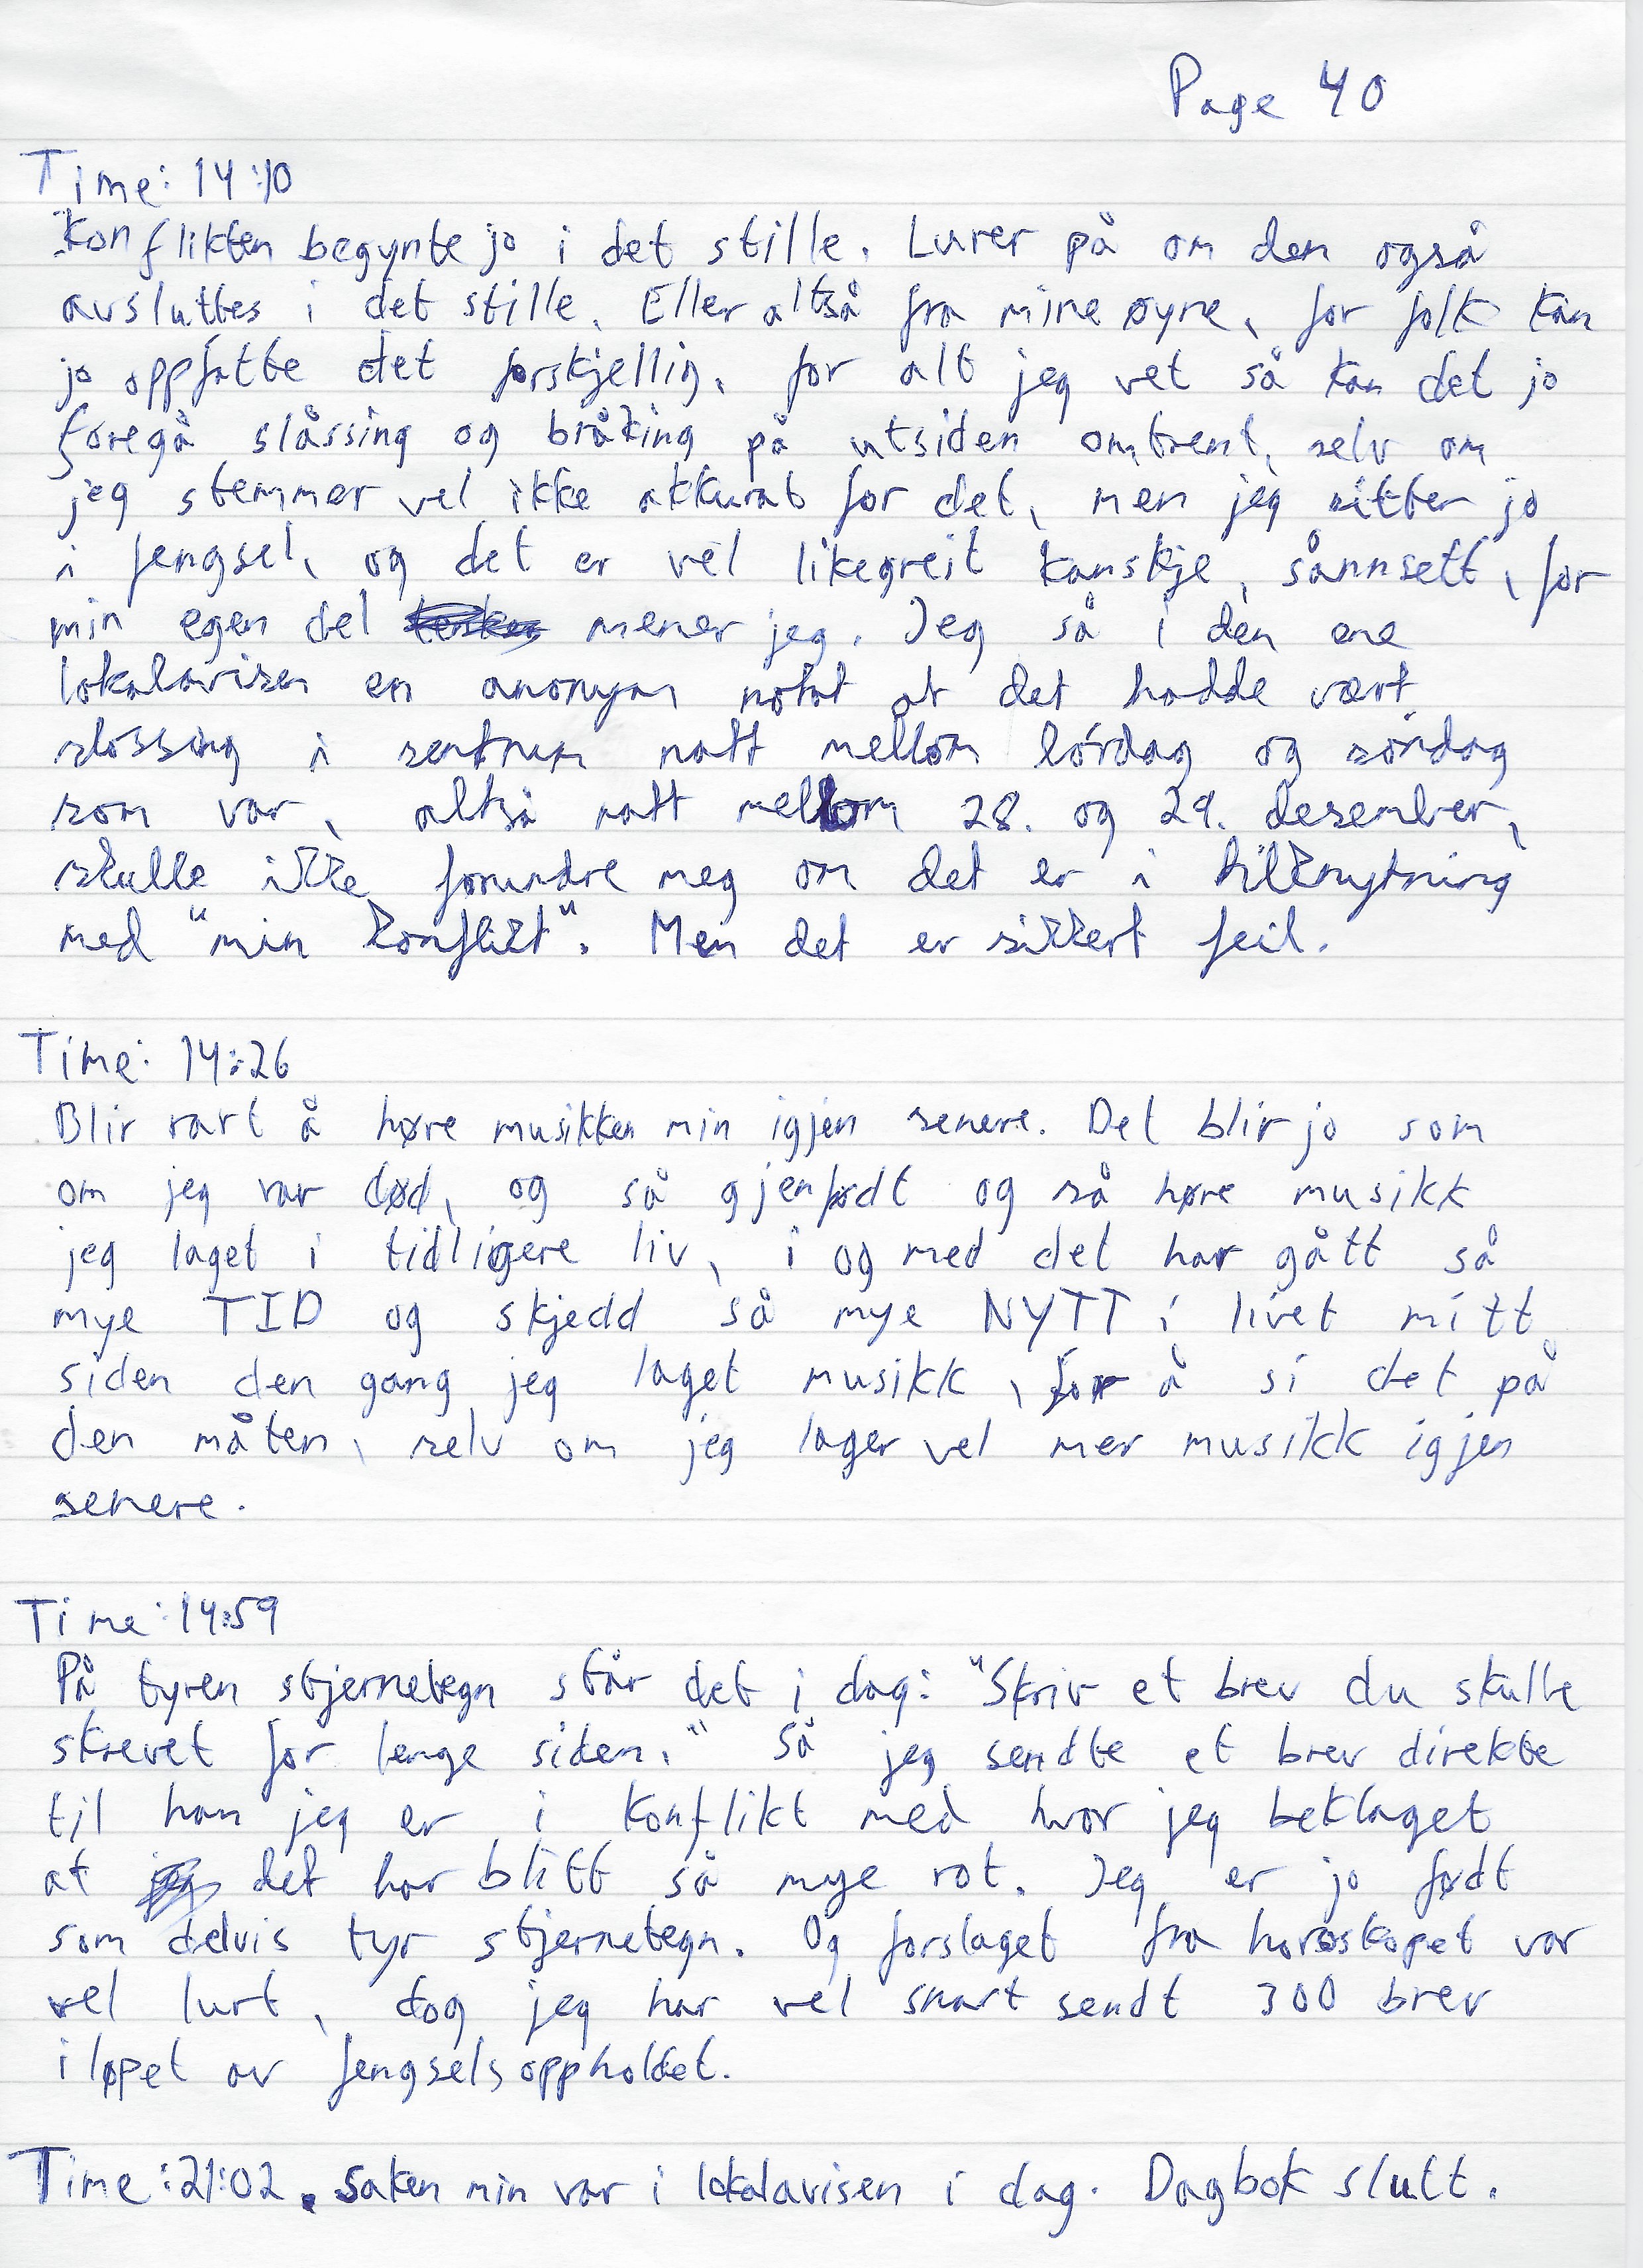 Page 40
Time: 14:10
Konflikten begynte jo i det stille. Lurer på om den også
avsluttes i det stille. Eller altså fra mine øyne, for folk kan
jo oppfatte det forskjellig, for alt jeg vet så kan det jo
foregå slåssing og bråking på utsiden omtrent, selv om
jeg stemmer vel ikke akkurat for det, men jeg sitter jo
i fengsel, og det er vel likegreit kanskje, sånnsett, for
min egen del mener jeg. Jeg så i den ene
lokalavisen en anonym notat at det hadde vært
slossing i sentrum natt mellom lórdag og sóndag
som var, altså natt mellom 28. og 29. desember,
skulle ikke forundre meg om det er i tilknytning
med "min konflikt". Men det er sikkert feil.
Time: 14:26
Blir rart å høre musikken min igjen senere. Det blir jo som
om jeg var død, og så gjenfødt og så høre musikk
jeg laget i tidligere liv, i og med det har gått så
mye TID og skjedd så mye NYTT i livet mitt
siden den gang jeg laget musikk, for å si det på
den måten, selv om jeg lager vel mer musikk igjen
senere.
Time: 14:59
På tyren stjernetegn står det i dag: "Skriv et brev du skulle
skrevet for lenge siden." Så jeg sendte et brev direkte
til han jeg er i konflikt med hvor jeg beklaget
at det har blitt så mye rot. Jeg er jo født
som delvis tyr stjernetegn. Og forslaget fra horoskopet var
vel lurt, dog jeg har vel snart sendt 300 brev
i løpet av fengselsoppholdet.
Time: 21:02. Saken min var i lokalavisen i dag. Dagbok slutt.